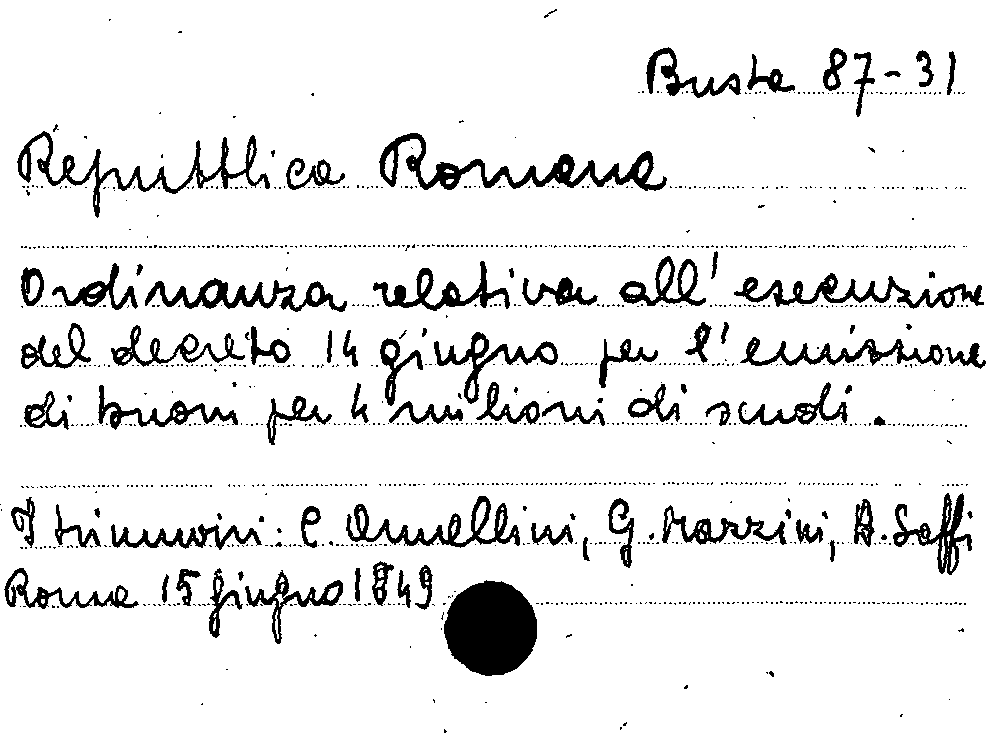 Busta 87-31
Repubblica Romana
Ordinanza relativa all' esecuzione
del decreto 14 giugno per l' emissione
di buoni per 4 milioni di scudi.
I triumviri: C. Armellini, G. Mazzini, A. Saffi
Roma 15 giugno 1849